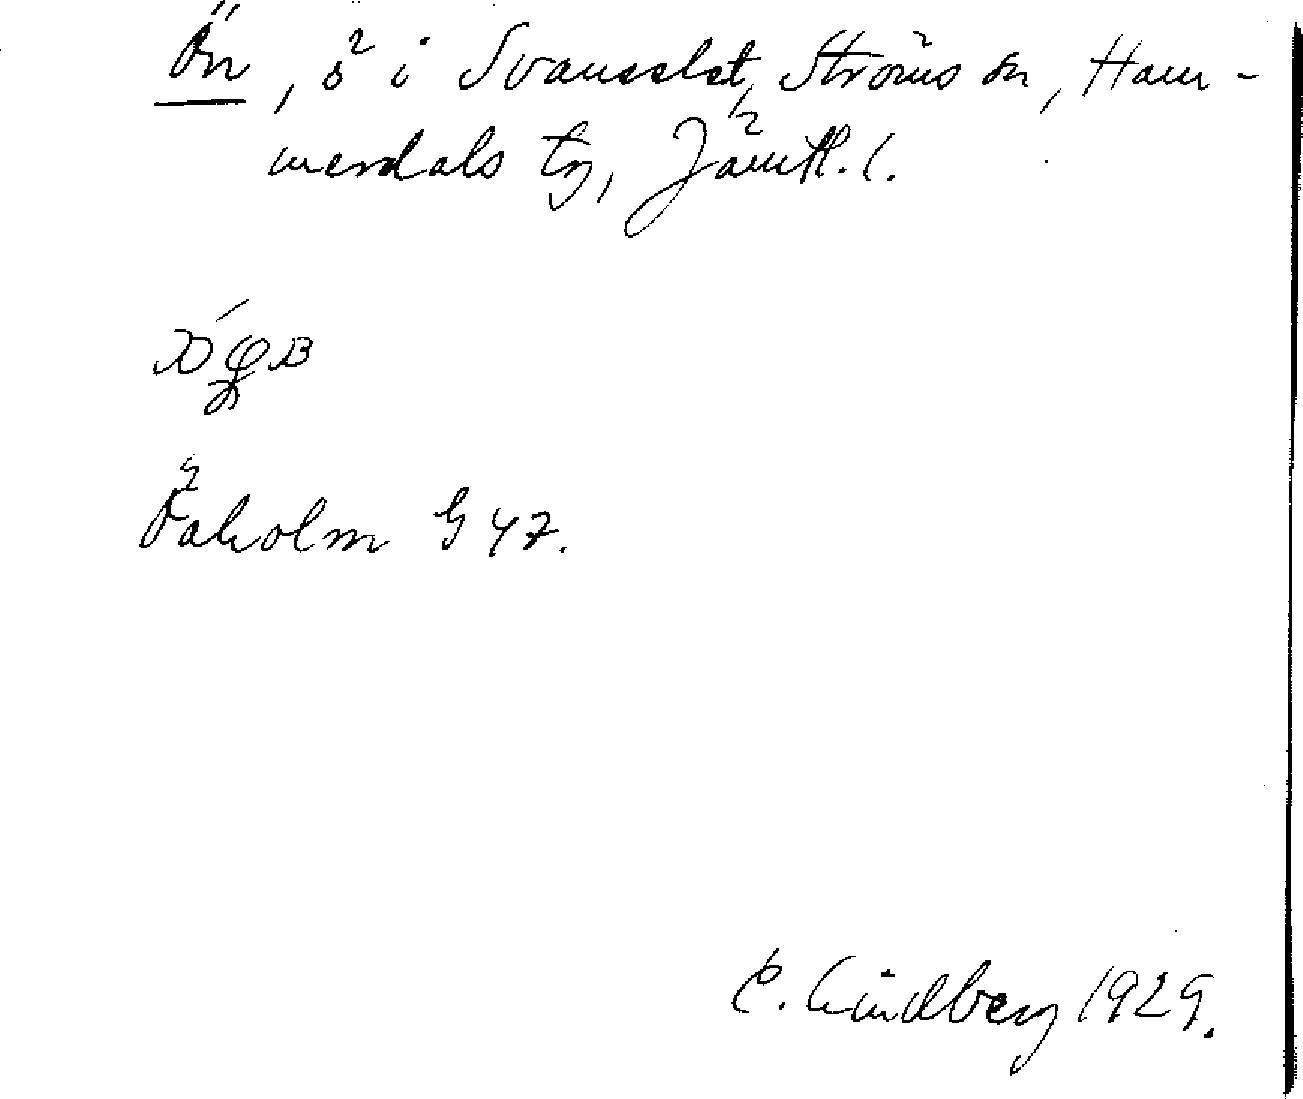 Ön, ö i Svanselet, Ströms sn, Ham-
merdals tg, Jämtl. l.
Oxholm G 47.
C. Lindberg 1929.